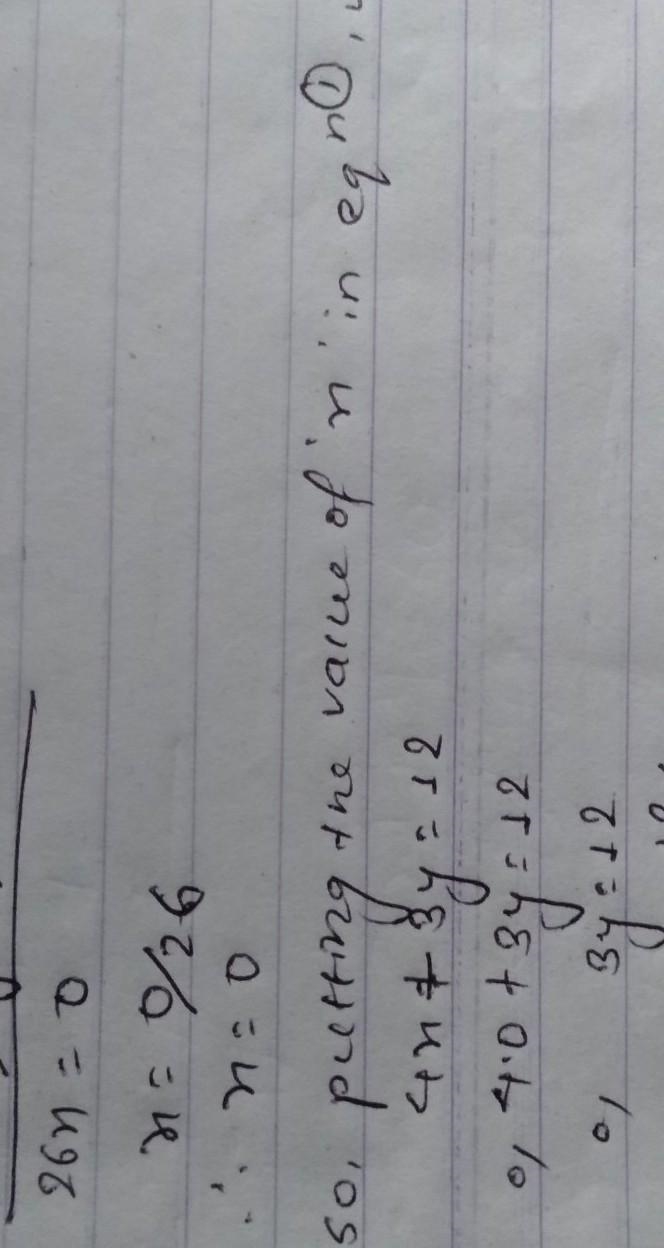 26x = 0
x = 0/26
∴ x = 0
so, putting the value of 'x' in eqn ①,
4x + 3y = 12
%, 4.0 + 3y = 12
%, 3y = 12